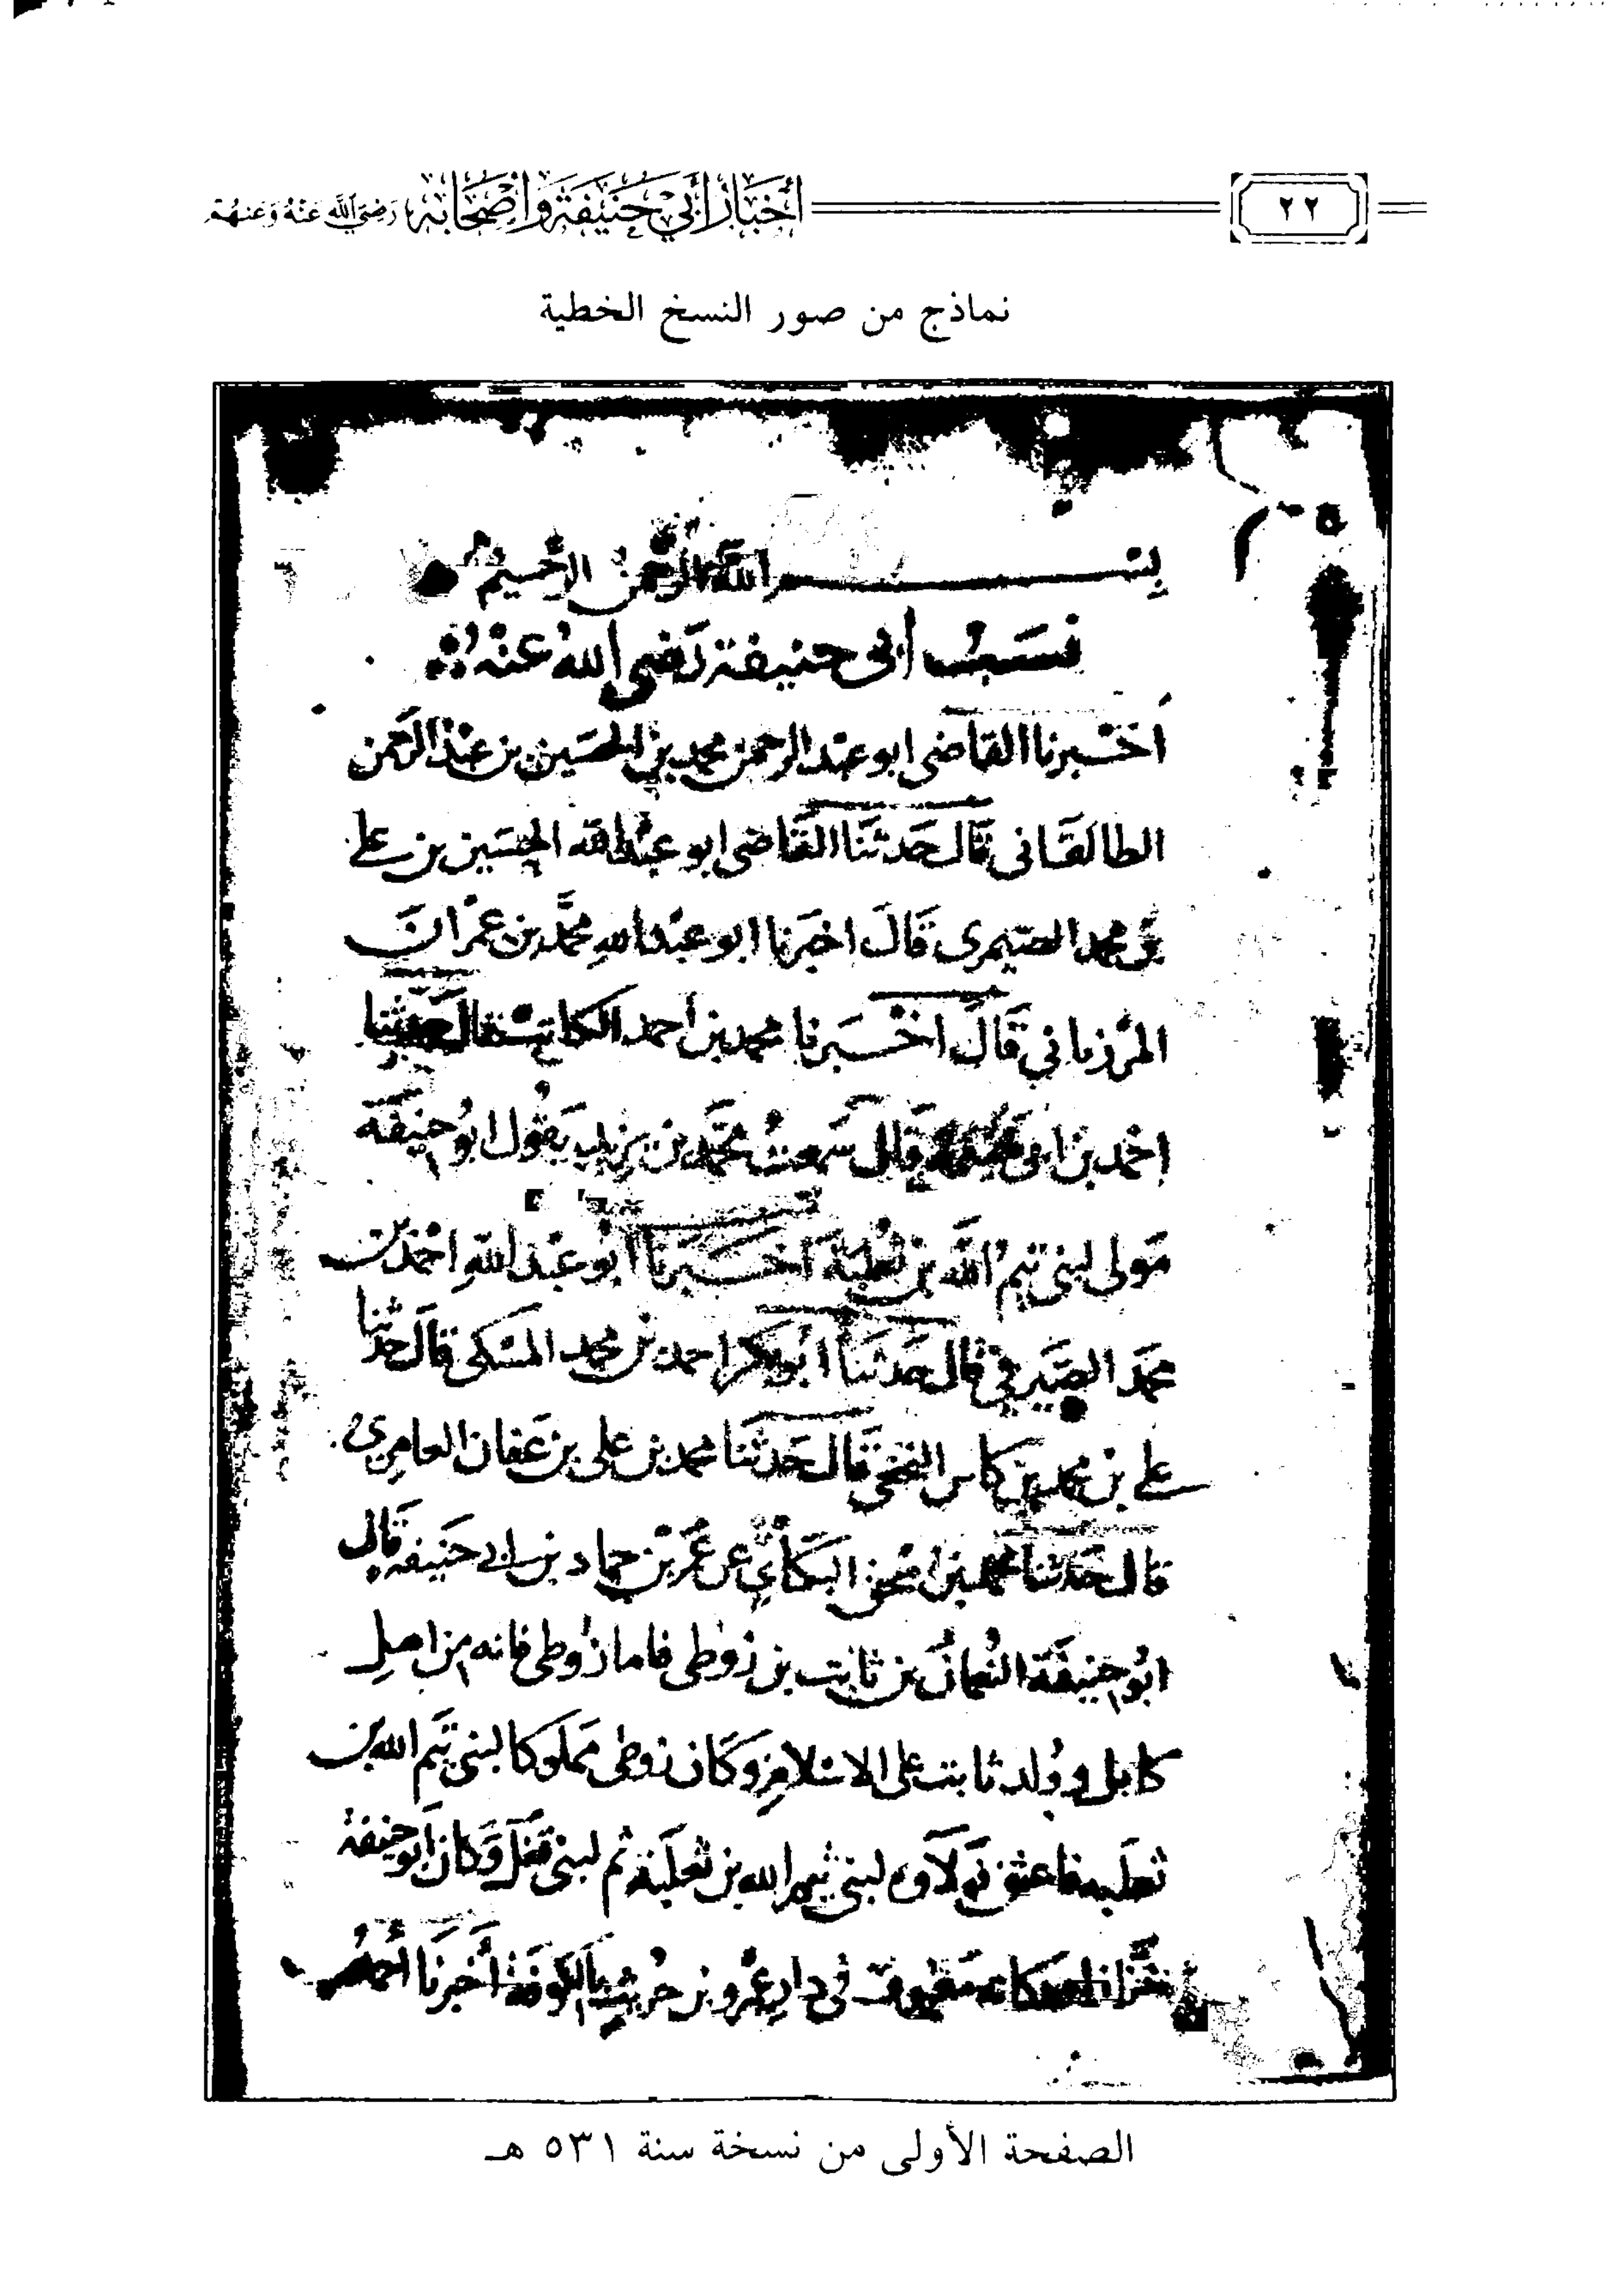 ٢٢
أخبار أبي حنيفة وأصحابه رضي الله عنه وعنهم
نماذج من صور النسخ الخطية
بسم الله الرحمن الرحيم
نسب أبي حنيفة رضي الله عنه
اخبرنا القاضي ابو عبد الرحمن محمد بن الحسين بن عبد الرحمن
الطالقاني قال حدثنا القاضي ابو عبد الله الحسين بن علي
بن محمد الصيمري قال اخبرنا ابو عبد الله محمد بن عمران
المرزباني قال اخبرنا محمد بن احمد الكاتب قال حدثنا
احمد بن ابي قال سمعت محمد بن يزيد يقول ابو حنيفة
مولى لبني تيم الله بن ثعلبة اخبرنا ابو عبد الله احمد بن
محمد الصيرفي قال حدثنا ابو بكر احمد بن محمد المسكي قال حدثنا
علي بن محمد بن كاس النخعي قال حدثنا محمد بن علي بن عفان العامري
قال حدثنا محمد بن اسحق البكائي عن عمر بن حماد بن ابي حنيفة قال
ابو حنيفة النعمان بن ثابت بن زوطى فاما زوطى فانه من اهل
كابل وولد ثابت على الاسلام وكان زوطى مملوكا لبني تيم الله بن
ثعلبة فاعتق فولاؤه لبني تيم الله بن ثعلبة ثم لبني قفل وكان ابو حنيفة
خزازا ودكانه معروف في دار عمرو بن حريث بالكوفة أخبرنا
الصفحة الأولى من نسخة سنة ٥٣١ هـ